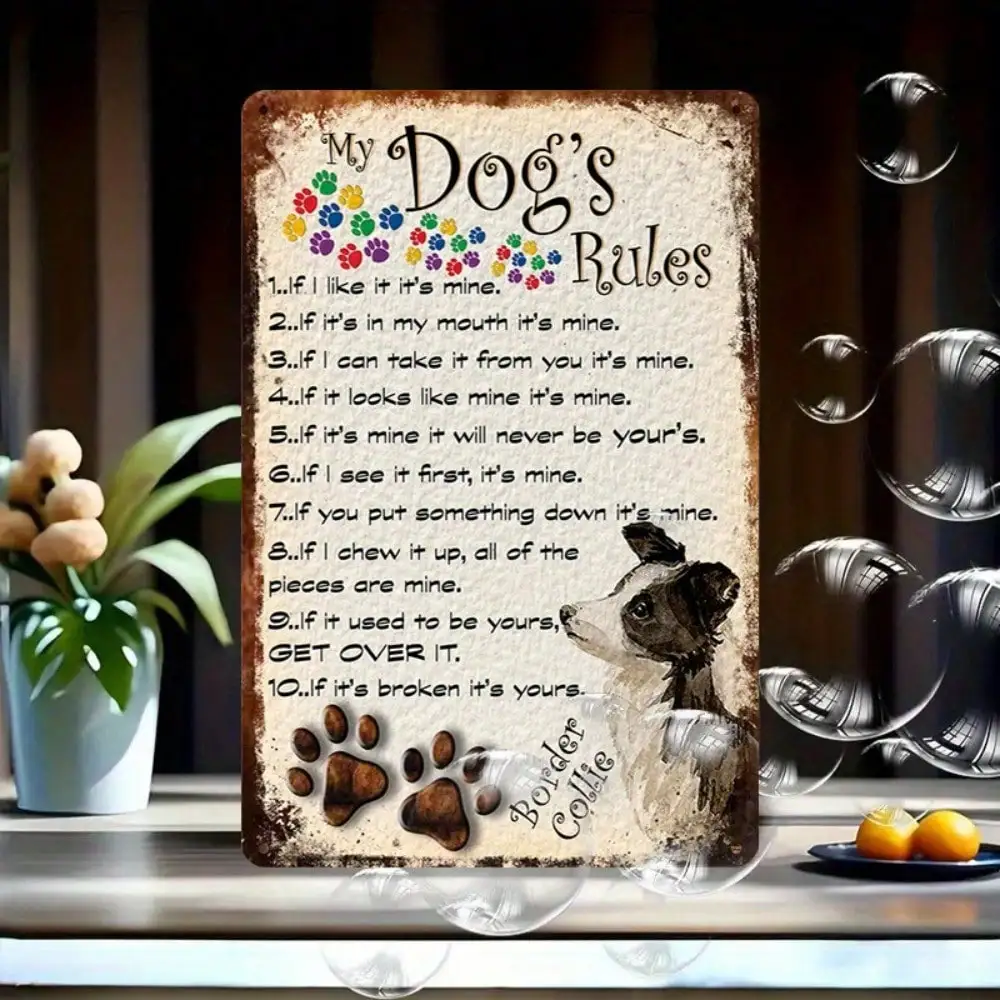 My Dog's
Rules
1..If I like it it's mine.
2..If it's in my mouth it's mine.
3..If I can take it from you it's mine.
4..If it looks like mine it's mine.
5..If it's mine it will never be your's.
6..If I see it first, it's mine.
7..If you put something down it's mine.
8..If I chew it up, all of the
pieces are mine.
9..If it used to be yours,
GET OVER IT.
10..If it's broken it's yours.
Border
Collie